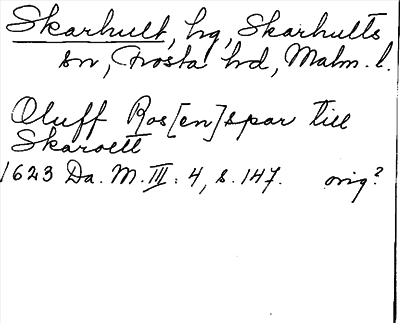 Skarhult, hg, Skarhults
sn, Frosta hd, Malm. l.
Oluff Ros[en]spar till
Skaroltt
1623 Da. M. III: 4, s. 147. orig?